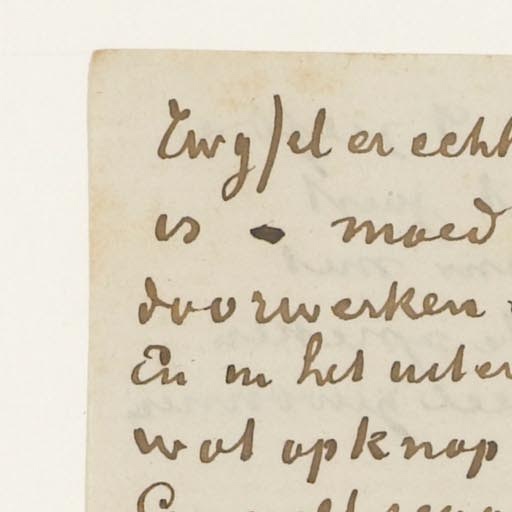 Twyfel er echt
is moed
doorwerken
En in het uiter
wat opknap